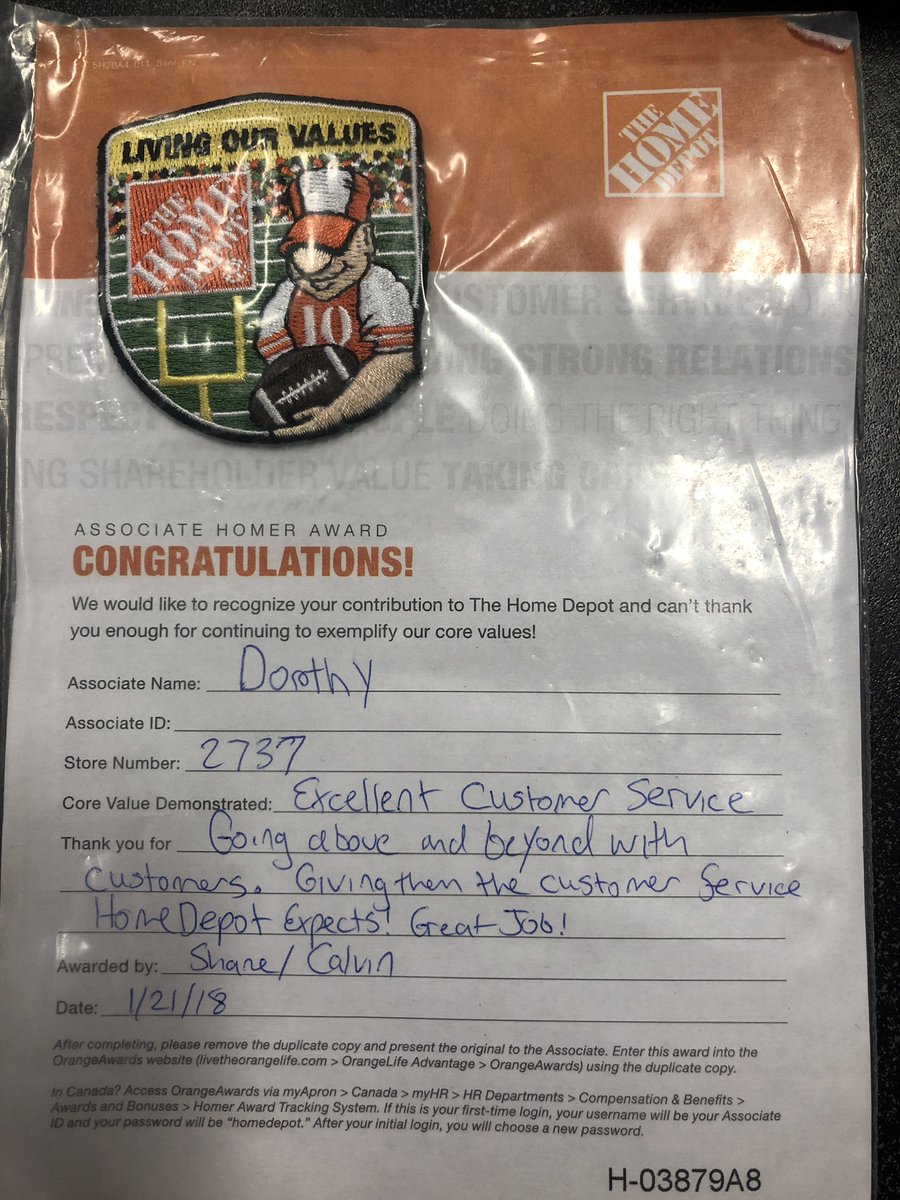 SH20A4-011_Seni_EN
LIVING OUR VALUES
THE
HOME
DEPOT
10
THE
HOME
DEPOT
CUSTOMER SERVICE
STRONG RELATIONS
RESPECT PEOPLE DOING THE RIGHT THING
NG SHAREHOLDER VALUE TAKING
ASSOCIATE HOMER AWARD
CONGRATULATIONS!
We would like to recognize your contribution to The Home Depot and can't thank
you enough for continuing to exemplify our core values!
Associate Name: Dorothy
Associate ID:
Store Number: 2737
Core Value Demonstrated: Excellent Customer Service
Thank you for Going above and beyond with
Customers. Giving them the customer service
Home Depot Expects! Great Job!
Awarded by: Shane/ Calvin
Date: 1/21/18
After completing, please remove the duplicate copy and present the original to the Associate. Enter this award into the
OrangeAwards website (livetheorangelife.com > OrangeLife Advantage > OrangeAwards) using the duplicate copy.
In Canada? Access OrangeAwards via myApron > Canada > myHR > HR Departments > Compensation & Benefits >
Awards and Bonuses > Homer Award Tracking System. If this is your first-time login, your username will be your Associate
ID and your password will be "homedepot." After your initial login, you will choose a new password.
H-03879A8